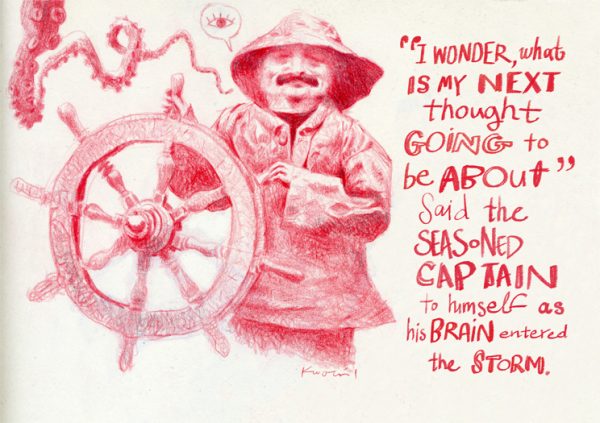 "I WONDER, what
IS MY NEXT
thought
GOING to
be ABOUT"
Said the
SEASONED
CAPTAIN
to himself as
his BRAIN entered
the STORM.